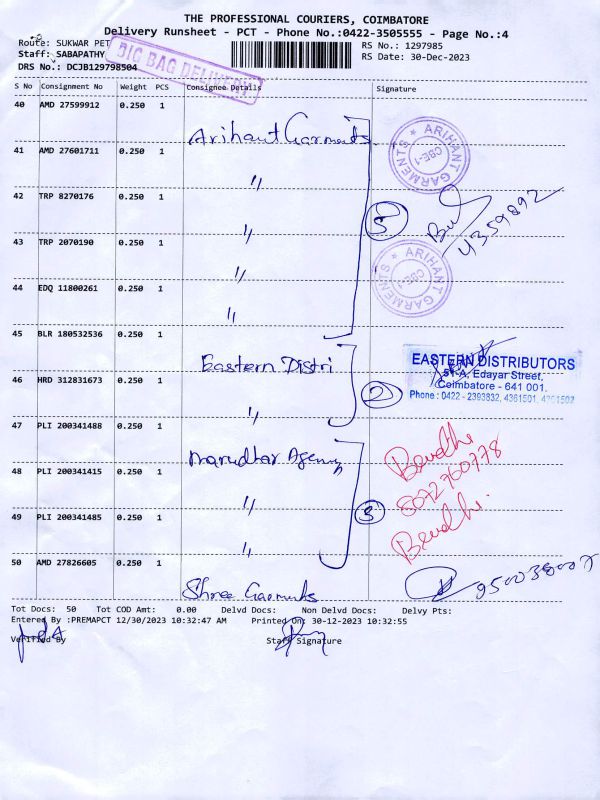 THE PROFESSIONAL COURIERS, COIMBATORE
Delivery Runsheet - PCT - Phone No.:0422-3505555 - Page No.:4
Route: SUKWAR PET
RS No.: 1297985
Staff: SABAPATHY
RS Date: 30-Dec-2023
DRS No.: DCJB129798504
BIG BAG DELIVERY
S No Consignment No Weight PCS Consignee Details Signature
40 AMD 27599912 0.250 1
Arihant Garments
ARIHANT GARMENTS
CBE-1
41 AMD 27601711 0.250 1
"
42 TRP 8270176 0.250 1
5
4359892
"
43 TRP 2070190 0.250 1
"
ARIHANT GARMENTS
CBE-1
44 EDQ 11800261 0.250 1
"
45 BLR 180532536 0.250 1
Eastern Distri
EASTERN DISTRIBUTORS
51-A, Edayar Street,
Coimbatore - 641 001.
Phone : 0422 - 2393832, 4361501, 4361502
46 HRD 312831673 0.250 1
2
"
47 PLI 200341488 0.250 1
Marudhar Agency
8072760778
48 PLI 200341415 0.250 1
"
3
49 PLI 200341485 0.250 1
"
50 AMD 27826605 0.250 1
Shree Garments
Tot Docs: 50 Tot COD Amt: 0.00 Delvd Docs: Non Delvd Docs: Delvy Pts:
Entered By :PREMAPCT 12/30/2023 10:32:47 AM Printed On: 30-12-2023 10:32:55
Verified By Staff Signature